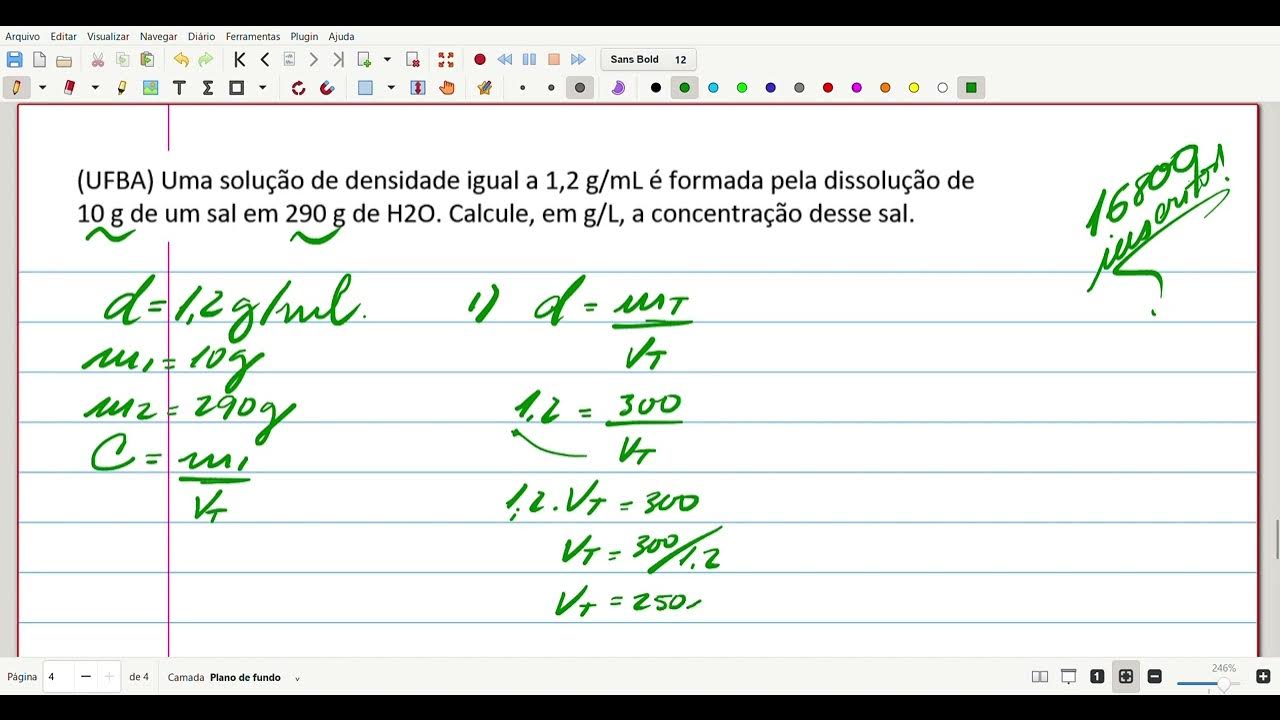 Arquivo Editar Visualizar Navegar Diário Ferramentas Plugin Ajuda
Sans Bold 12
(UFBA) Uma solução de densidade igual a 1,2 g/mL é formada pela dissolução de
10 g de um sal em 290 g de H2O. Calcule, em g/L, a concentração desse sal.
16800
inscritos!
?
d = 1,2 g/ml.
m1 = 10g
m2 = 290g
C = m1
VT
1) d = mT
VT
1,2 = 300
VT
1,2 . VT = 300
VT = 300/1,2
VT = 250
Página 4 de 4 Camada Plano de fundo
246%